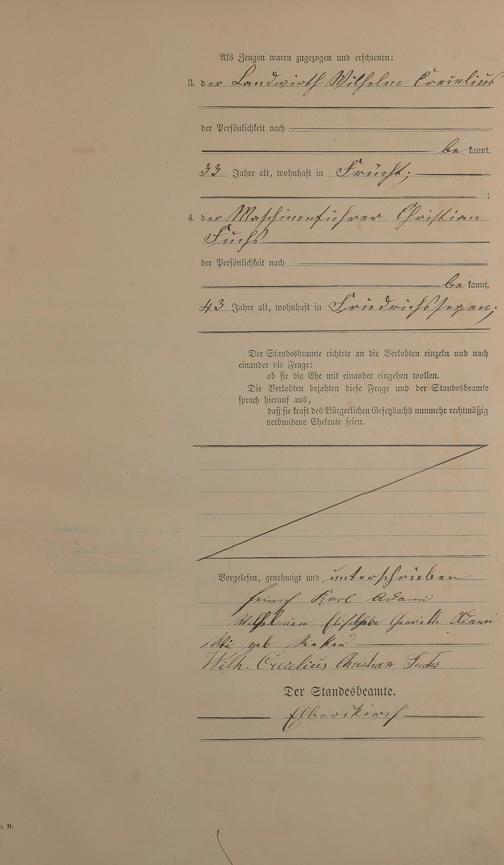 Als Zeugen waren zugezogen und erschienen:
3. der Landwirth Wilhelm Crecelius
der Persönlichkeit nach
be kannt,
33 Jahre alt, wohnhaft in Frücht;
;
4. der Maschinenführer Christian
Fuchs
der Persönlichkeit nach
be kannt,
43 Jahre alt, wohnhaft in Friedrichssegen;
Der Standesbeamte richtete an die Verlobten einzeln und nach
einander die Frage:
ob sie die Ehe mit einander eingehen wollen.
Die Verlobten bejahten diese Frage und der Standesbeamte
sprach hierauf aus,
daß sie kraft des Bürgerlichen Gesetzbuchs nunmehr rechtmäßig
verbundene Eheleute seien.
Vorgelesen, genehmigt und unterschrieben
Karl Adami
Henriette Adami
geb
Wilh. Crecelius Christian Fuchs
Der Standesbeamte.